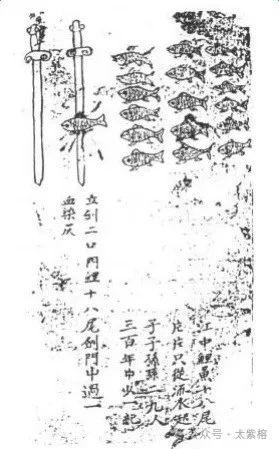 江中鯉魚十八尾
片片只從水起
子子孫孫二九人
三百年中一起
立剑二口內鯉十八尾剑門中過一
血染灰
公众号·太紫榕